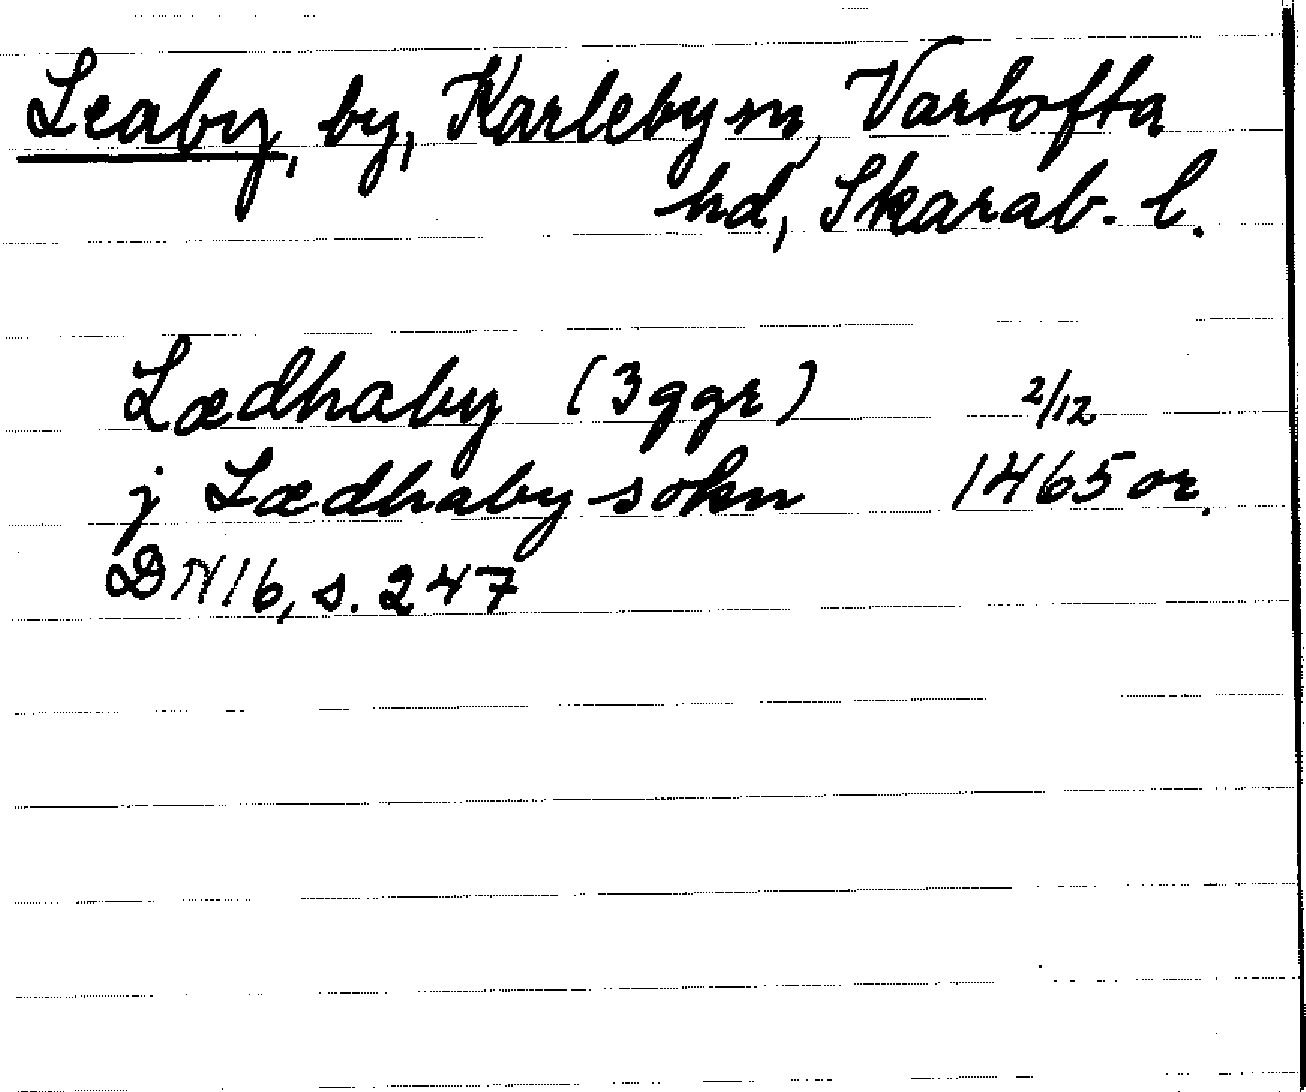 Leaby, by, Karleby sn, Vartofta
hd, Skarab. l.
Lædhaby (3 ggr) 2/12
j Lædhaby sokn 1465 or.
DN 16, s. 247